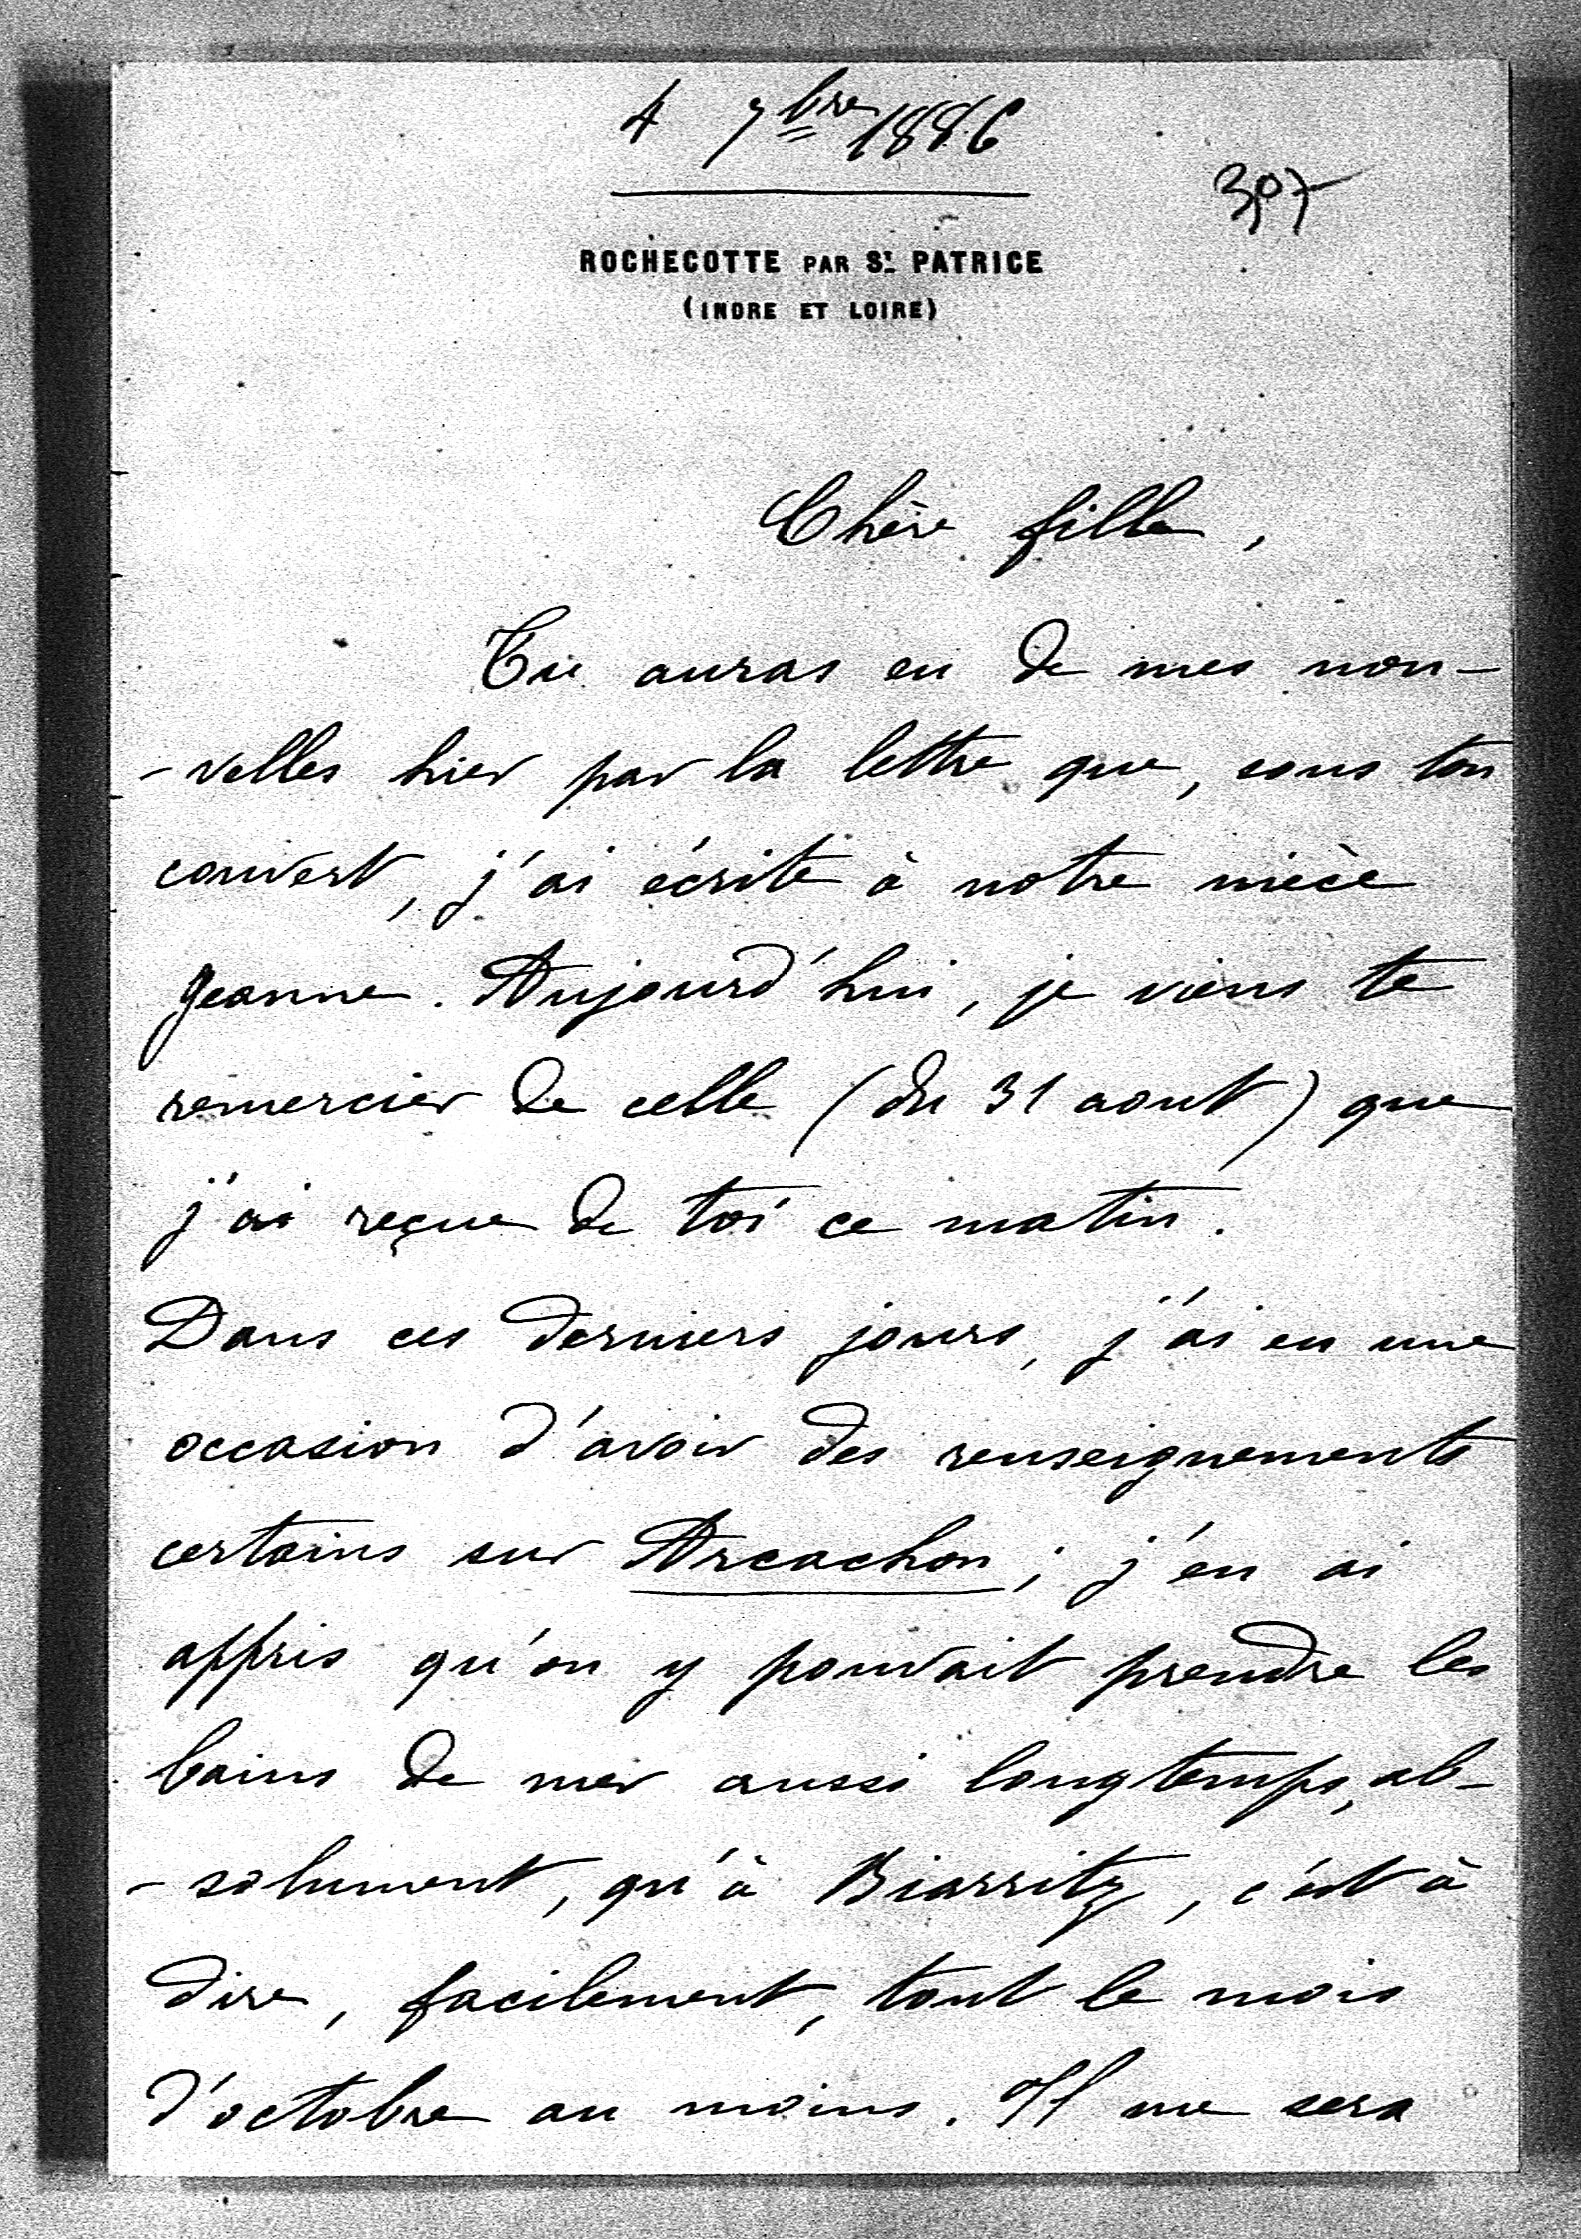 4 7bre 1886
307
ROCHECOTTE PAR ST PATRICE
(INDRE ET LOIRE)
Chère fille,
Tu auras eu de mes nou-
-velles hier par la lettre que, sous ton
couvert, j'ai écrite à notre nièce
Jeanne. Aujourd'hui, je viens te
remercier de celle (du 31 aout) que
j'ai reçue de toi ce matin.
Dans ces derniers jours, j'ai eu une
occasion d'avoir des renseignements
certains sur Arcachon; j'en ai
appris qu'on y pouvait prendre les
bains de mer aussi longtemps, ab-
-solument, qu'à Biarritz, c'est à
dire, facilement, tout le mois
d'octobre au moins. Il me sera